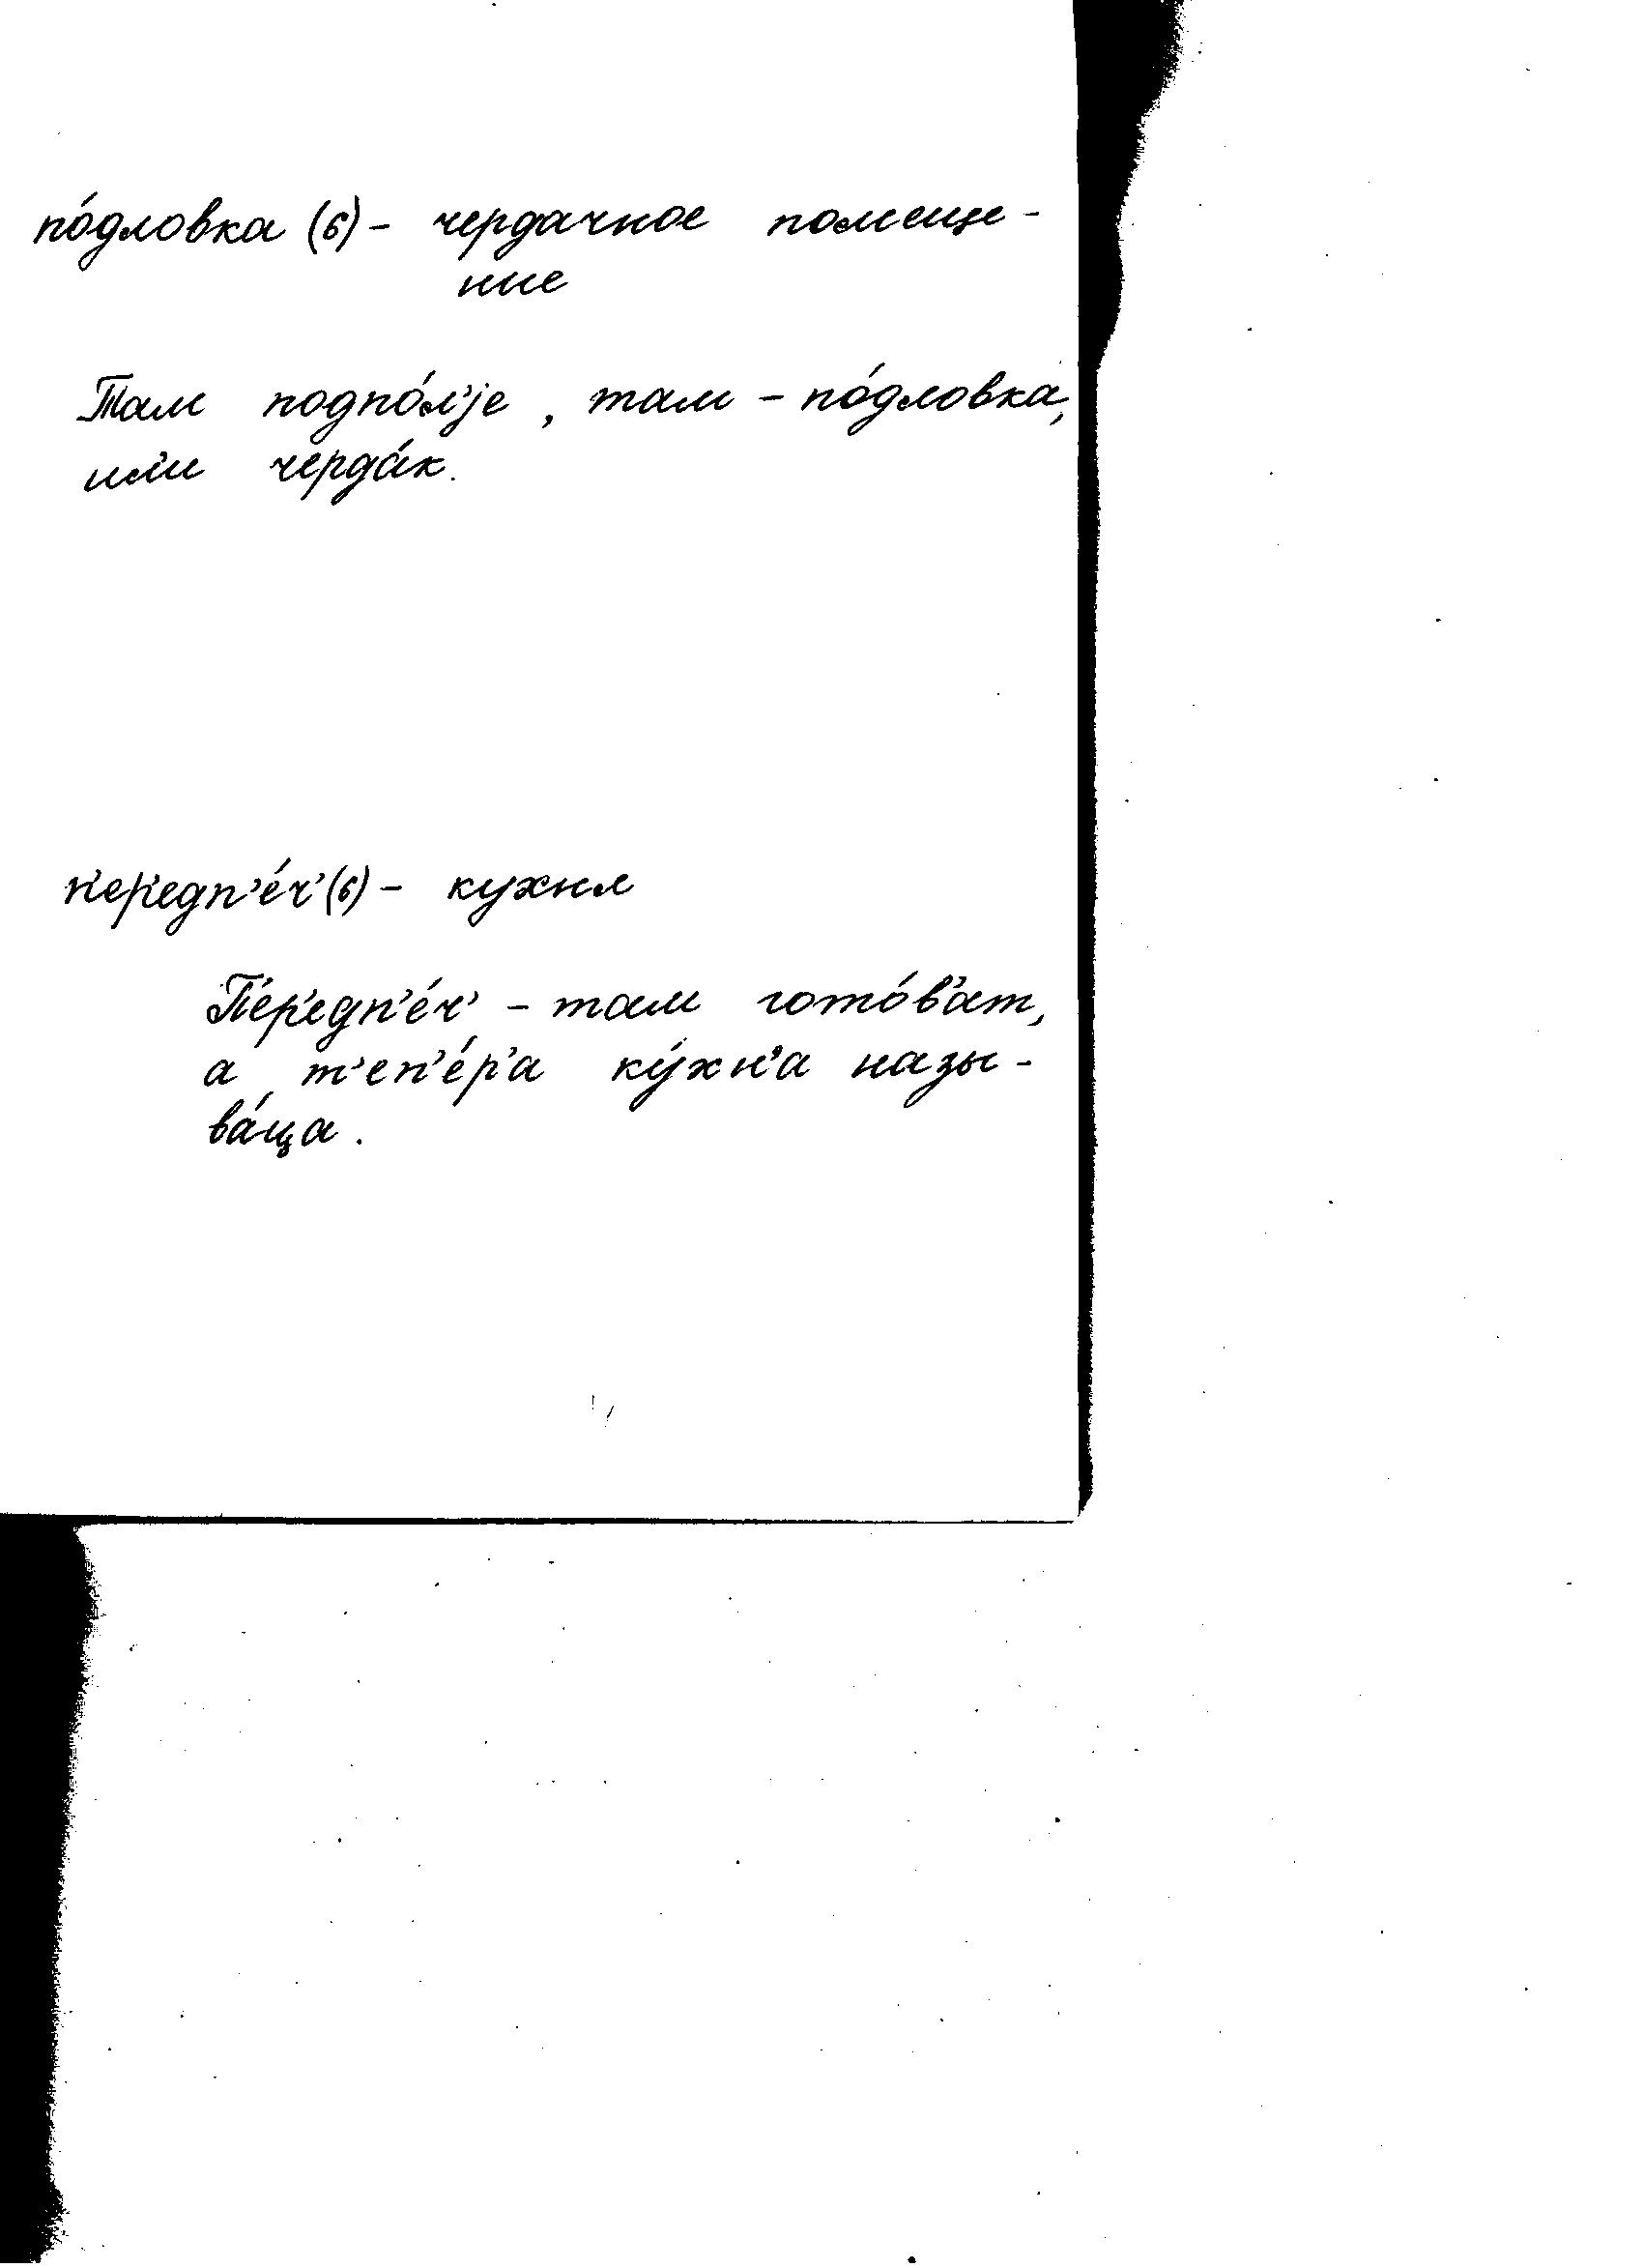 по́дловка (6) – чердачное помеще-
ние
Там подпо́л'jе, там – по́дловка,
ил'и черда́к.
п'ер'едп'е́ч' (6) – кухня
П'ер'едп'е́ч' – там гото́в'ат,
а т'еп'е́р'а ку́хн'а назы-
ва́ца.